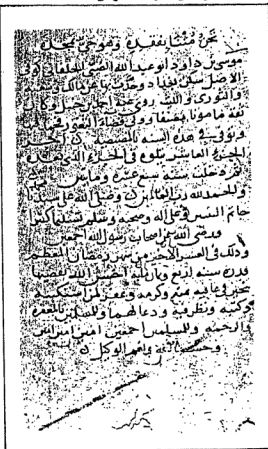 نحن فيها بفقده وهو حي بخلد
موسى بن داود أبو عبد الله الضبي الخلقاني كوفي
الأصل سكن بغداد وحدث بها عن مالك
والثوري والليث روى عنه أحمد بن حنبل وكان
ثقة مأمونا مصنفا وولي قضاء الثغور
وتوفي في هذه السنة
الجزء العاشر يتلوه في الجزء الذي بعده
ثم دخلت سنة سبع عشرة ومائتين
والحمد لله رب العالمين وصلى الله على سيدنا
خاتم النبيين وعلى آله وصحبه وسلم تسليما كثيرا
ورضي الله عن أصحاب رسول الله أجمعين
وذلك في العشر الأخير من شهر رمضان المعظم
قدره سنة أربع وثمان مائة أحسن الله تقضيها
بخير في عافية بمنه وكرمه وغفر لمن استكتبه
وكتبه ونظر فيه ودعا لهما وللمسلمين بالمغفرة
والرحمة والمسلمين أجمعين أمين أمين أمين
وحسبنا الله ونعم الوكيل